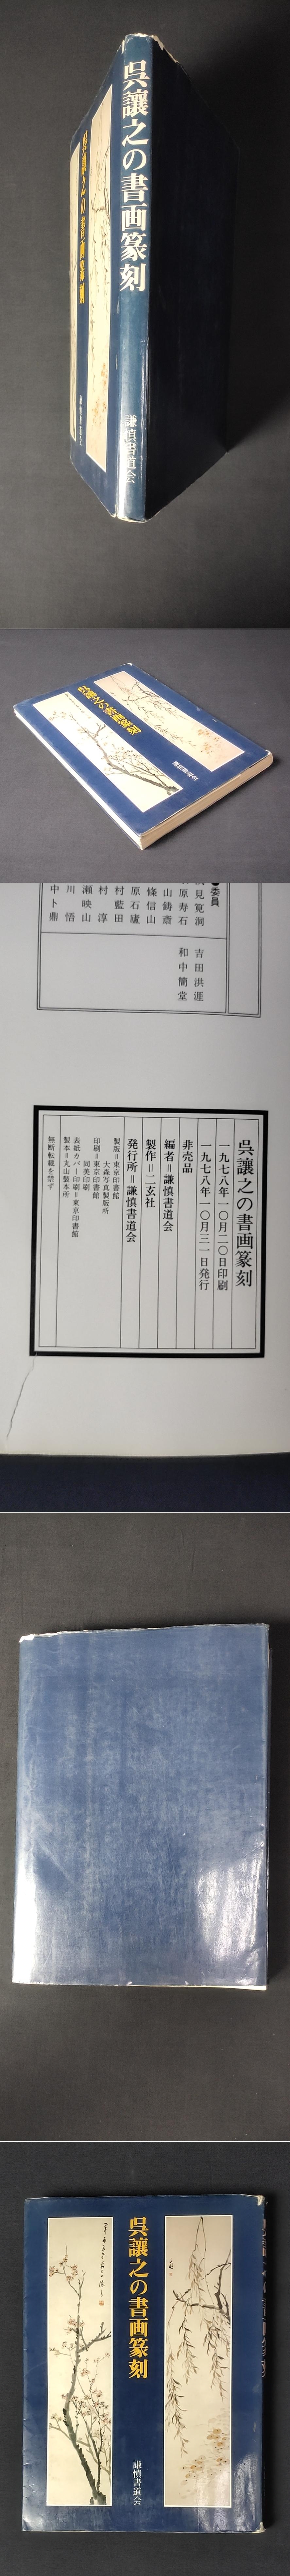 呉譲之の書画篆刻
謙慎書道会
呉譲之の書画篆刻
謙慎書道会
呉譲之の書画篆刻
謙慎書道会
●委員
見寛洞
原寿石
山鋳斎
條信山
原石廬
村藍田
村淳
瀬映山
川悟
中卜鼎
吉田洪涯
和中簡堂
呉譲之の書画篆刻
一九七八年一〇月二〇日印刷
一九七八年一〇月三一日発行
非売品
編者＝謙慎書道会
製作＝二玄社
発行所＝謙慎書道会
製版＝東京印書館
大森写真製版所
印刷＝東京印書館
同美印刷
表紙カバー印刷＝東京印書館
製本＝丸山製本所
無断転載を禁ず
呉譲之の書画篆刻
謙慎書道会